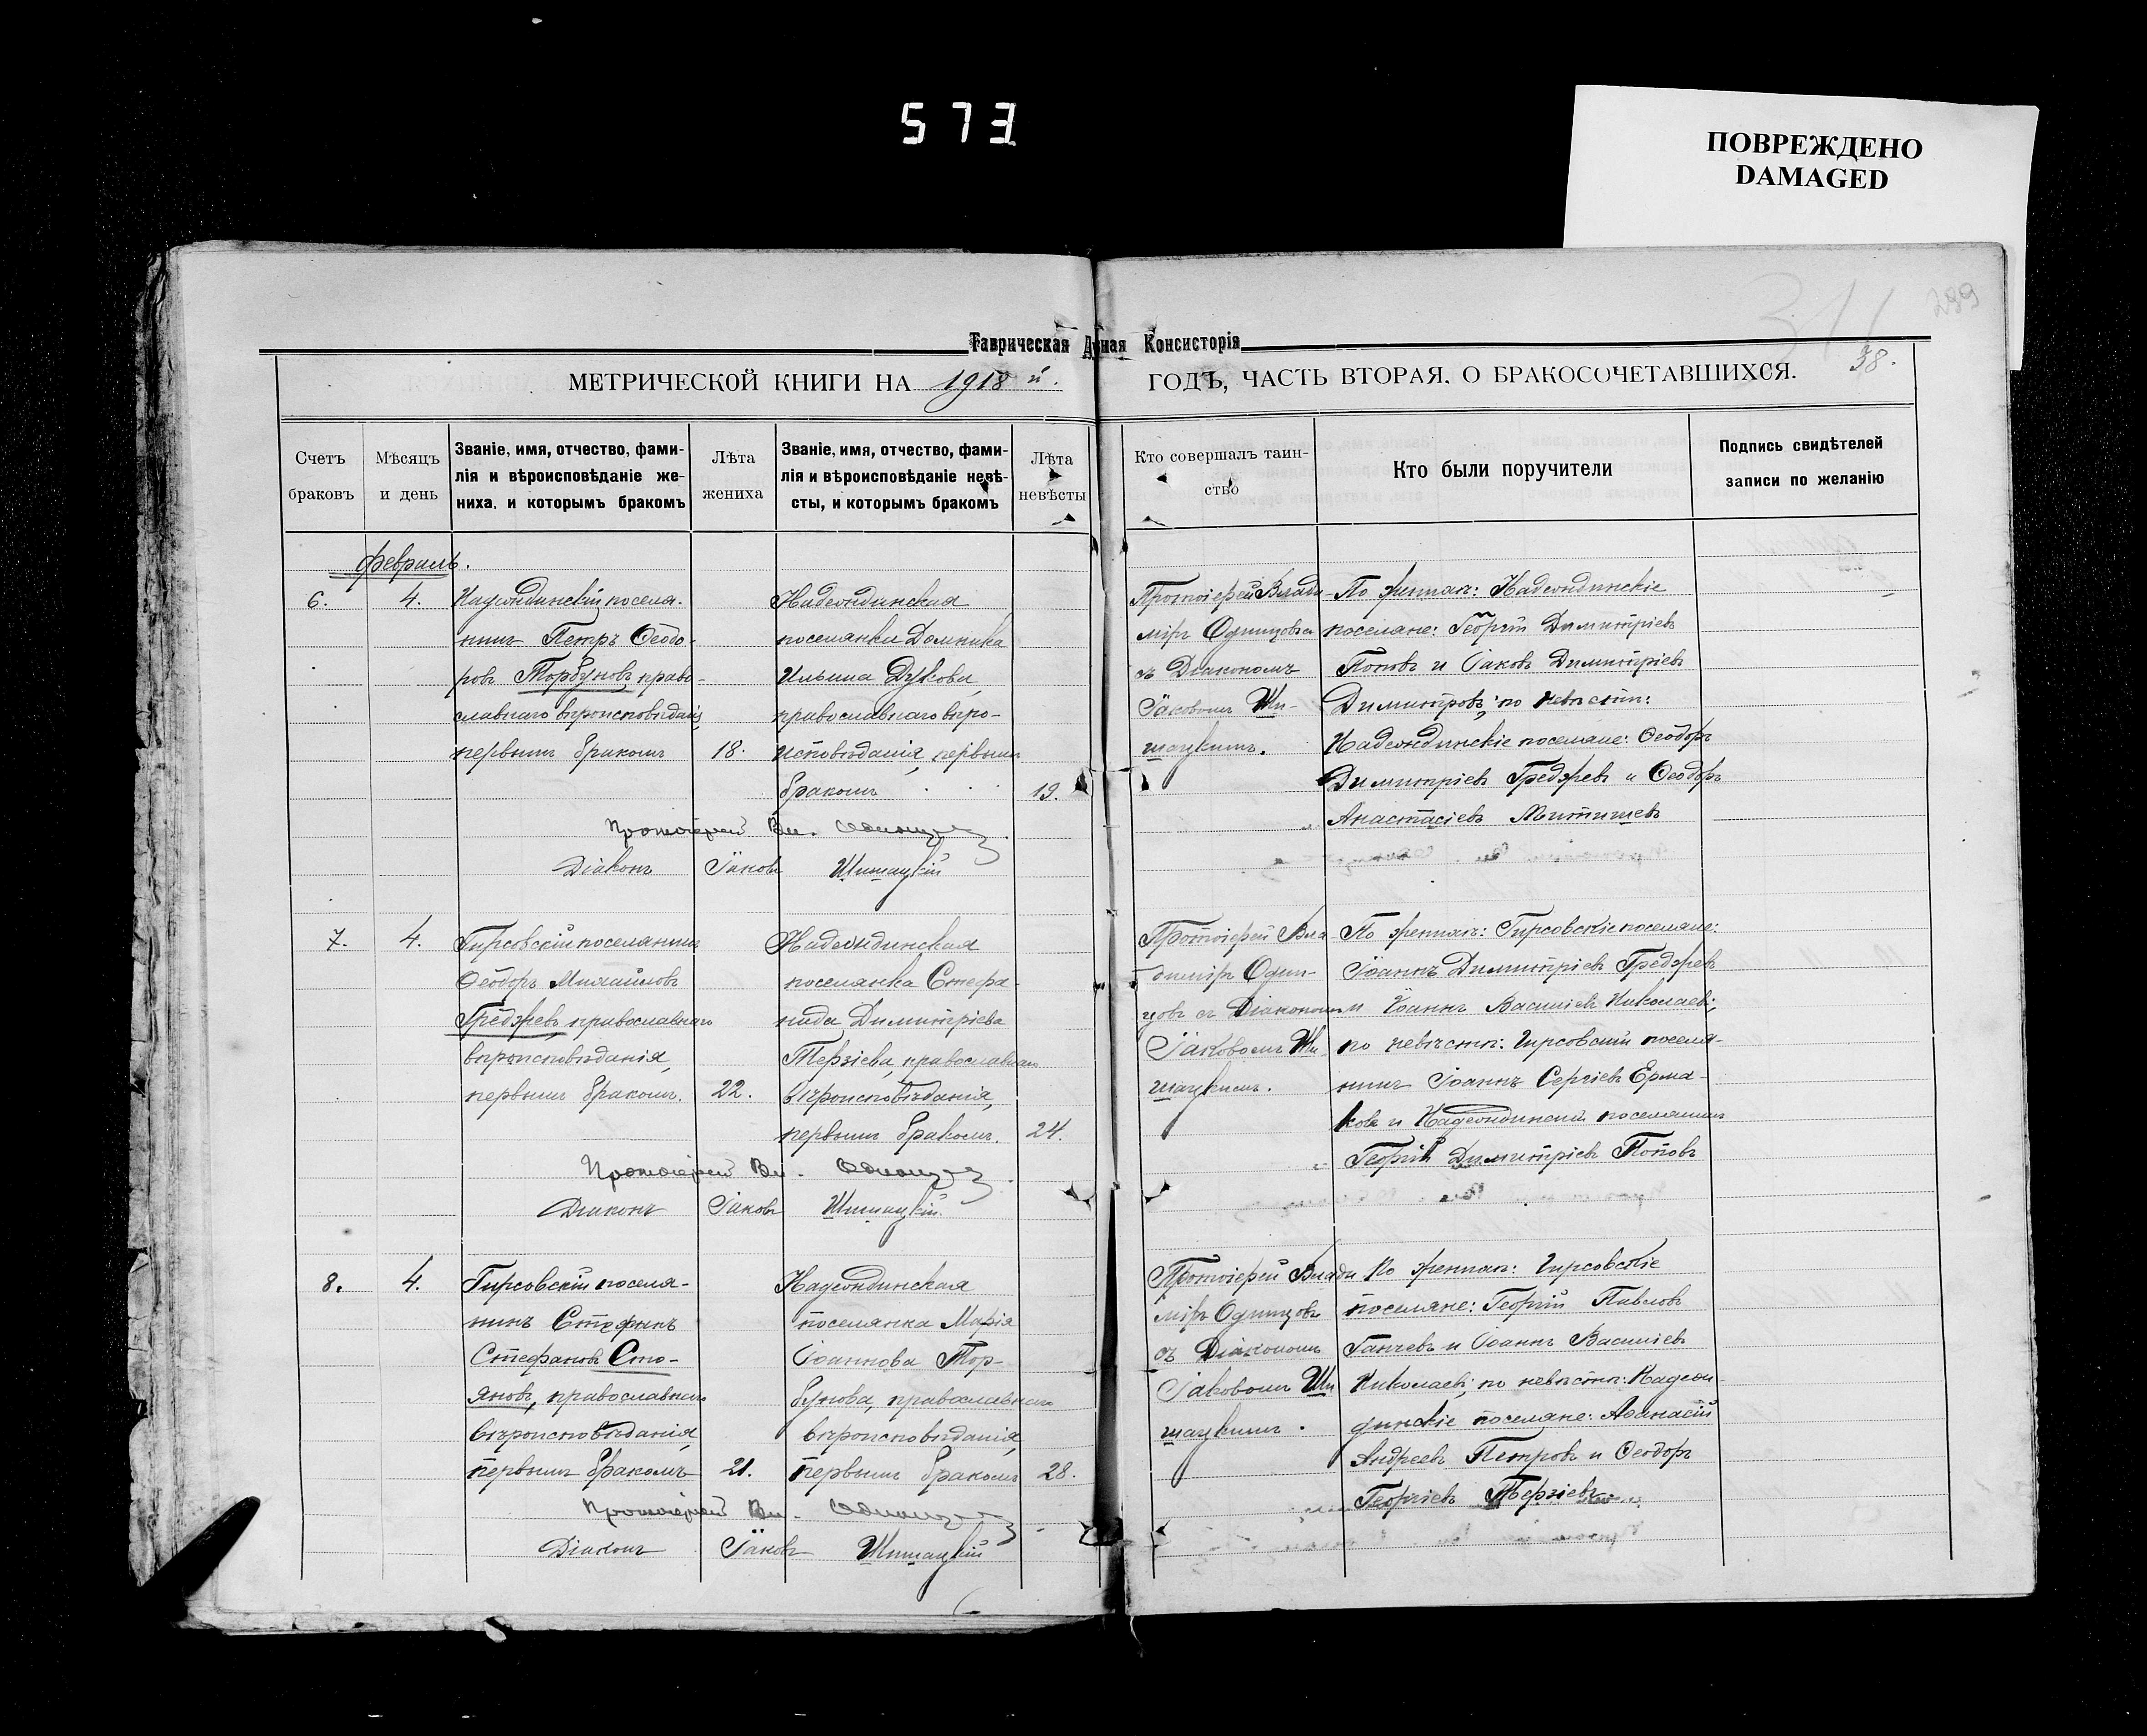 573
ПОВРЕЖДЕНО
DAMAGED
311
299
Таврическая Духовная Консисторія
38.
МЕТРИЧЕСКОЙ КНИГИ НА 1918 й.
ГОДЪ, ЧАСТЬ ВТОРАЯ. О БРАКОСОЧЕТАВШИХСЯ.
Счетъ браковъ
Мѣсяцъ и день
Званіе, имя, отчество, фами-
лія и вѣроисповѣданіе же-
ниха, и которымъ бракомъ
Лѣта жениха
Званіе, имя, отчество, фами-
лія и вѣроисповѣданіе невѣ-
сты, и которымъ бракомъ
Лѣта невѣсты
Кто совершалъ таин-
ство
Кто были поручители
Подпись свидѣтелей
записи по желанію
Февраль.
6.
4.
Надеондинскій поселя-
нинъ Петръ Ѳеодо-
ровъ Торбуновъ, право-
славнаго вѣроисповѣданія,
первымъ бракомъ
18.
Надеондинская
поселянка Домника
Ильина Дукова,
православнаго вѣро-
исповѣданія, первымъ
бракомъ
19.
Протоіерей Влади-
міръ Одинцовъ
съ Діакономъ
Іаковомъ Ши-
шацкимъ.
По женихѣ: Надеондинскіе
поселяне: Георгій Димитріевъ
Поповъ и Іаковъ Димитріевъ
Димитровъ; по невѣстѣ:
Надеондинскіе поселяне: Ѳеодоръ
Димитріевъ Греджевъ и Ѳеодоръ
Анастасіевъ Митишевъ
Протоіерей Вл. Одинцовъ
Діаконъ Іаковъ Шишацкій
7.
4.
Гирсовскій поселянинъ
Ѳеодоръ Михайловъ
Греджевъ, православнаго
вѣроисповѣданія,
первымъ бракомъ.
22.
Надеондинская
поселянка Стефа-
нида Димитріева
Терзіева, православнаго
вѣроисповѣданія,
первымъ бракомъ.
24.
Протоіерей Вла
диміръ Один-
цовъ съ Діакономъ
Іаковомъ Ши
шацкимъ.
По женихѣ: Гирсовскіе поселяне:
Іоаннъ Димитріевъ Греджевъ
и Іоаннъ Василіевъ Николаевъ;
по невѣстѣ: Гирсовскій поселя-
нинъ Іоаннъ Сергіевъ Ерма-
ковъ и Надеондинскій поселянинъ
Георгій Димитріевъ Поповъ
Протоіерей Вл. Одинцовъ
Діаконъ Іаковъ Шишацкій.
8.
4.
Гирсовскій поселя-
нинъ Стефанъ
Стефановъ Сто-
яновъ, православнаго
вѣроисповѣданія,
первымъ бракомъ
21.
Надеондинская
поселянка Марія
Іоаннова Тор-
бунова, православнаго
вѣроисповѣданія,
первымъ бракомъ
28.
Протоіерей Влади
міръ Одинцовъ
съ Діакономъ
Іаковомъ Ши
шацкимъ.
По женихѣ: Гирсовскіе
поселяне: Георгій Павловъ
Ганчевъ и Іоаннъ Василіевъ
Николаевъ; по невѣстѣ: Надеон-
динскіе поселяне: Аѳанасій
Андреевъ Петровъ и Ѳеодоръ
Георгіевъ Терзіевъ
Протоіерей Вл. Одинцовъ
Діаконъ Іаковъ Шишацкій